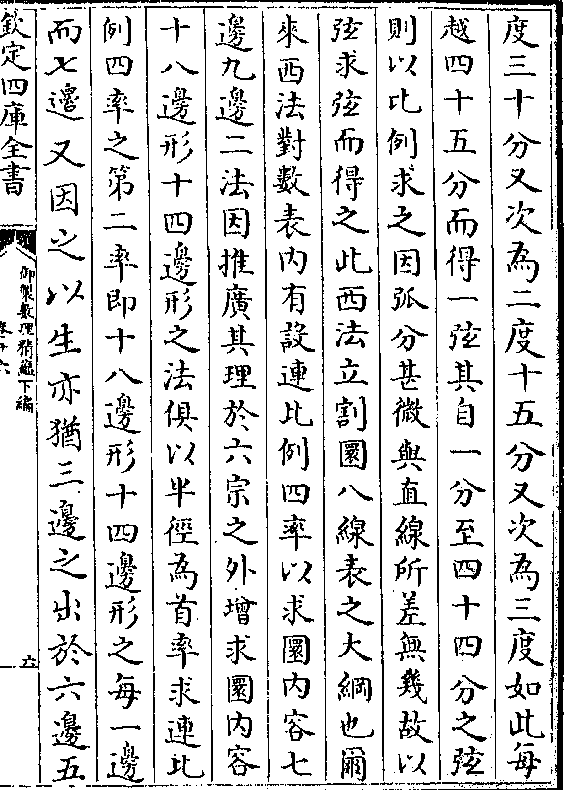 度三十分又次為二度十五分又次為三度如此每
越四十五分而得一弦其自一分至四十四分之弦
則以比例求之因弧分甚微與直線所差無幾故以
弦求弦而得之此西法立割圜八線表之大綱也爾
來西法對數表內有設連比例四率以求圜內容七
邊九邊二法因推廣其理於六宗之外增求圜內容
十八邊形十四邊形之法俱以半徑為首率求連比
例四率之第二率即十八邊形十四邊形之每一邊
而七邊又因之以生亦猶三邊之出於六邊五
欽定四庫全書
御製數理精蘊下編
卷十六
六